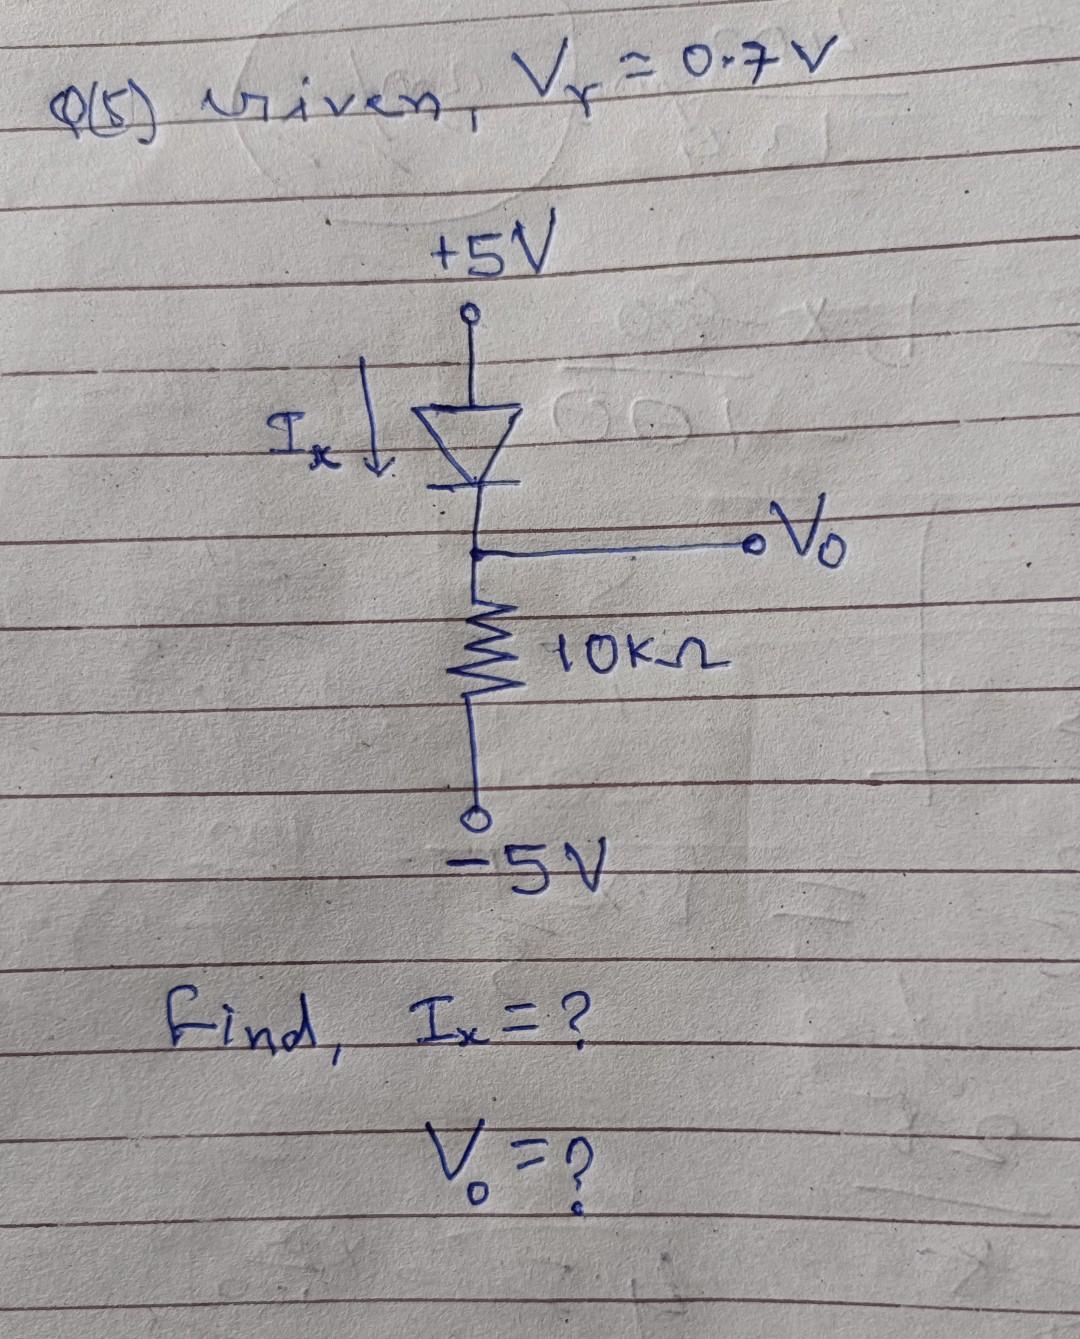 Q(5) Given, Vγ = 0.7 V
+5V
Ix
Vo
10KΩ
-5V
Find, Ix = ?
Vo = ?